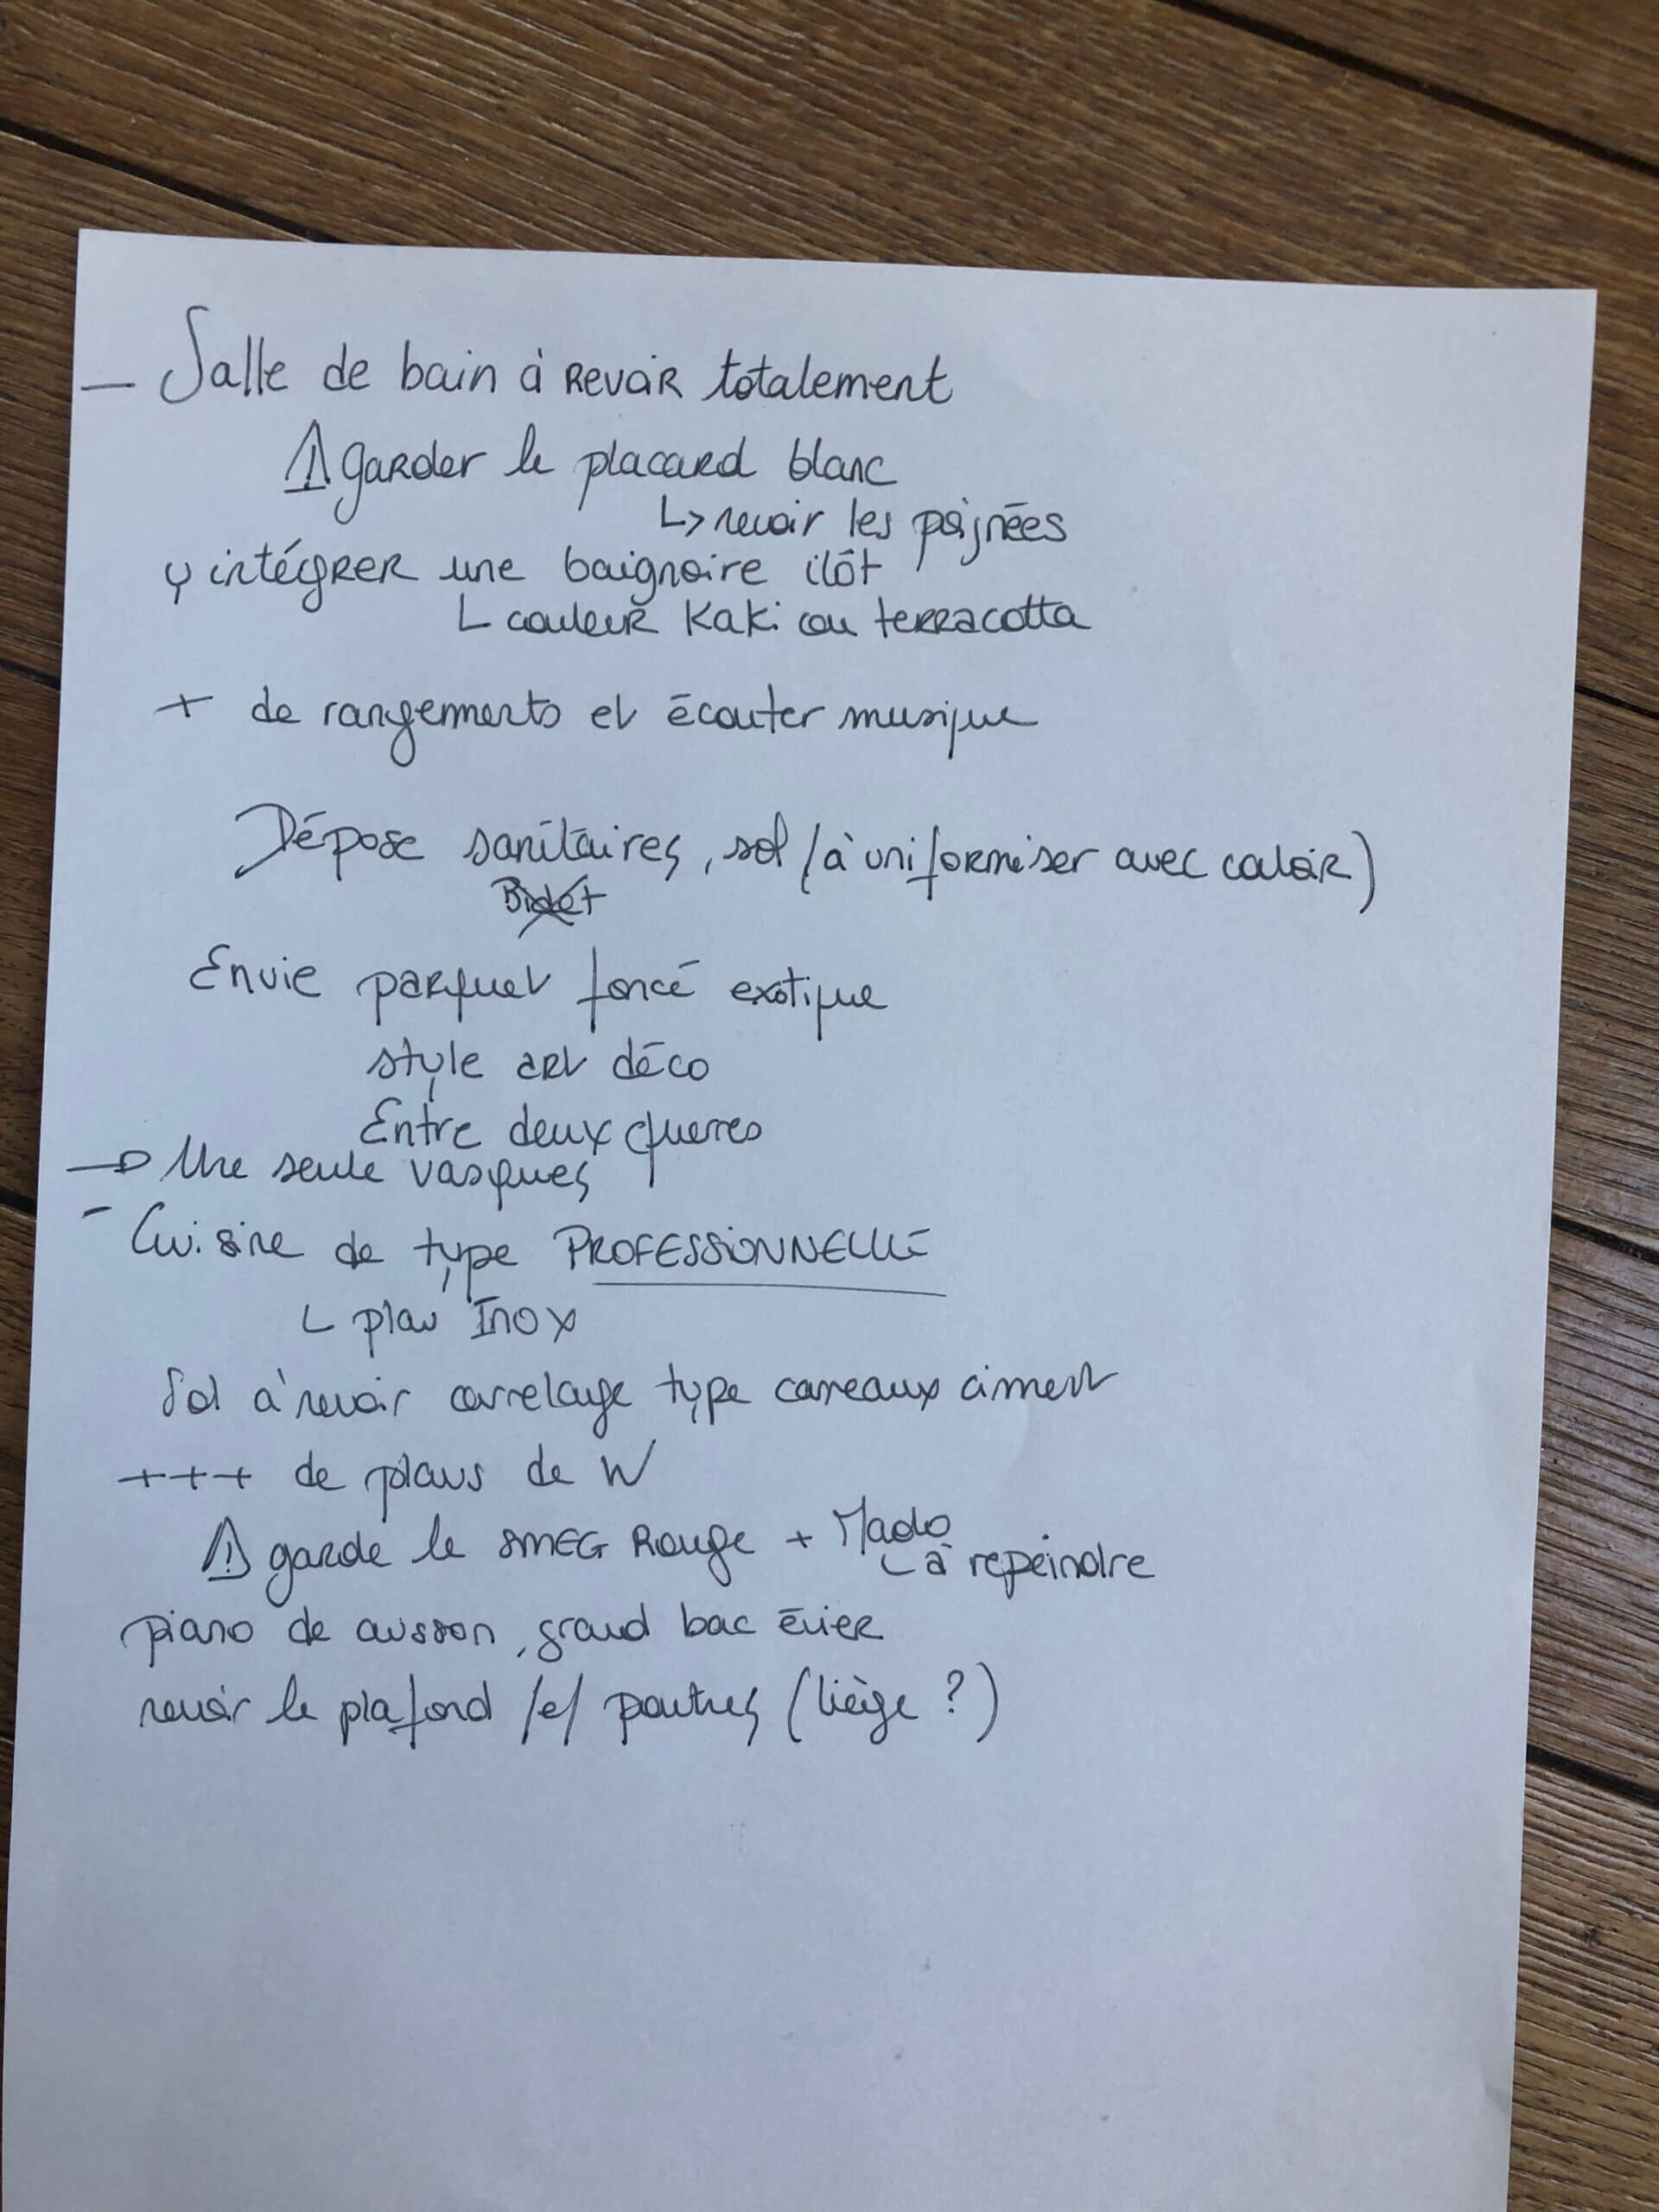 — Salle de bain à REVOIR totalement
⚠ garder le placard blanc
↳ revoir les poignées
y intégrer une baignoire ilôt
└ couleur Kaki ou terracotta
+ de rangements et écouter musique
Dépose sanitaires, sol (à uniformiser avec couloir)
Bidet
Envie parquet foncé exotique
style art déco
Entre deux guerres
→ Une seule vasques
- Cuisine de type PROFESSIONNELLE
└ plan Inox
Sol à revoir carrelage type carreaux ciment
+++ de plans de W
⚠ garde le SMEG Rouge + Mado
└ à repeindre
piano de cuisson, grand bac évier
revoir le plafond /e/ poutres (liège ?)